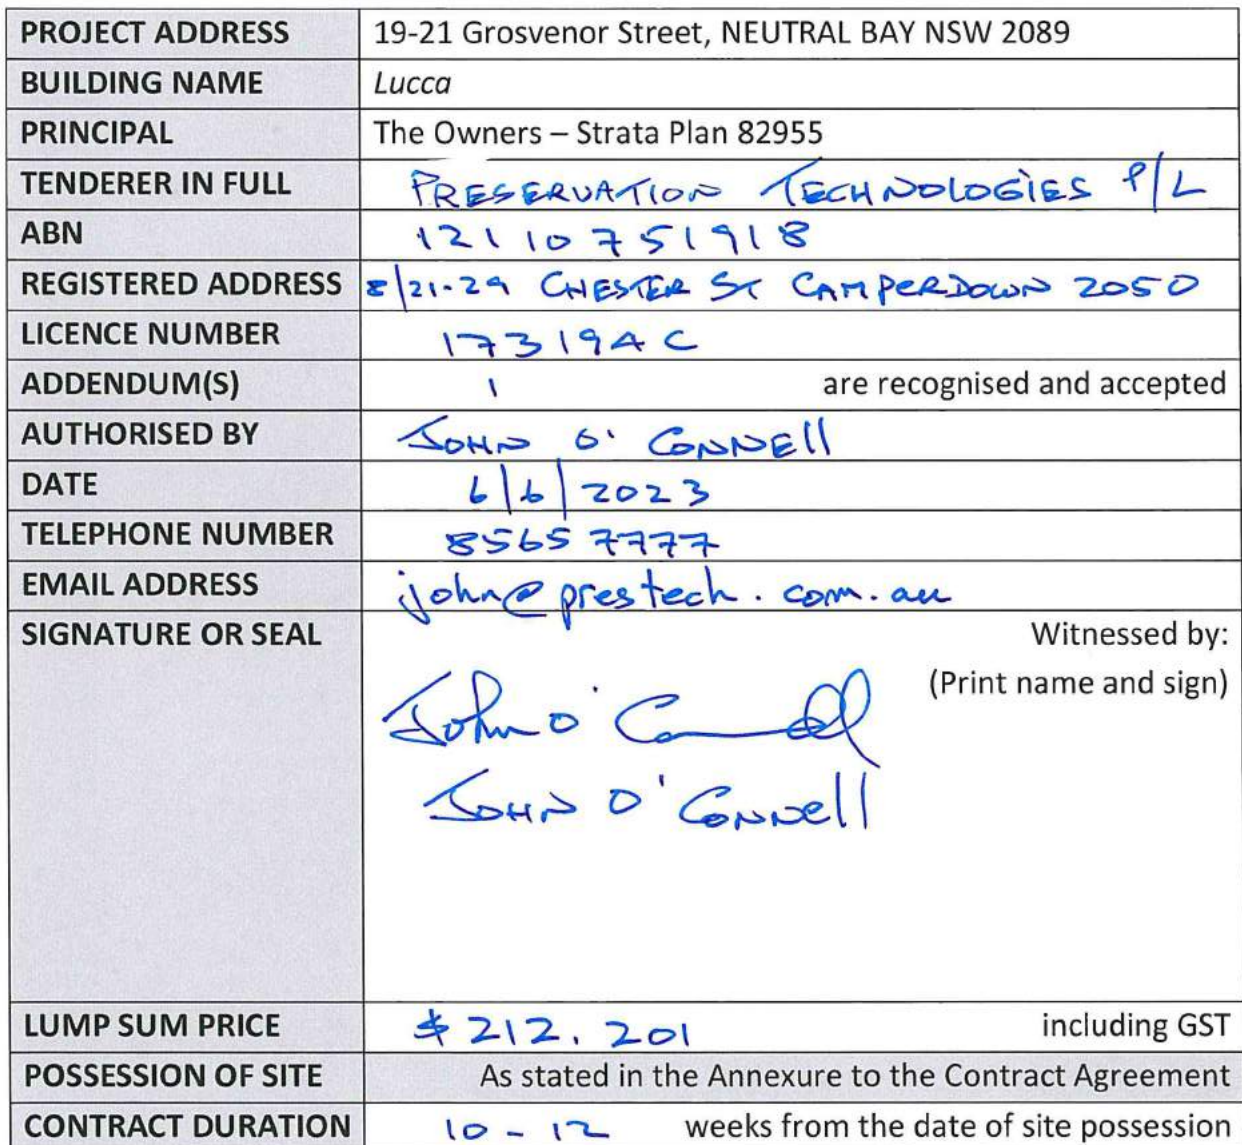 PROJECT ADDRESS 19-21 Grosvenor Street, NEUTRAL BAY NSW 2089
BUILDING NAME Lucca
PRINCIPAL The Owners – Strata Plan 82955
TENDERER IN FULL PRESERVATION TECHNOLOGIES P/L
ABN 12110751918
REGISTERED ADDRESS 8/21-29 CHESTER ST CAMPERDOWN 2050
LICENCE NUMBER 173194C
ADDENDUM(S) 1 are recognised and accepted
AUTHORISED BY JOHN O'CONNEll
DATE 6/6/2023
TELEPHONE NUMBER 8565 7777
EMAIL ADDRESS john@prestech.com.au
SIGNATURE OR SEAL Witnessed by:
(Print name and sign)
John O'Connell
JOHN O'CONNell
LUMP SUM PRICE $212,201 including GST
POSSESSION OF SITE As stated in the Annexure to the Contract Agreement
CONTRACT DURATION 10 - 12 weeks from the date of site possession